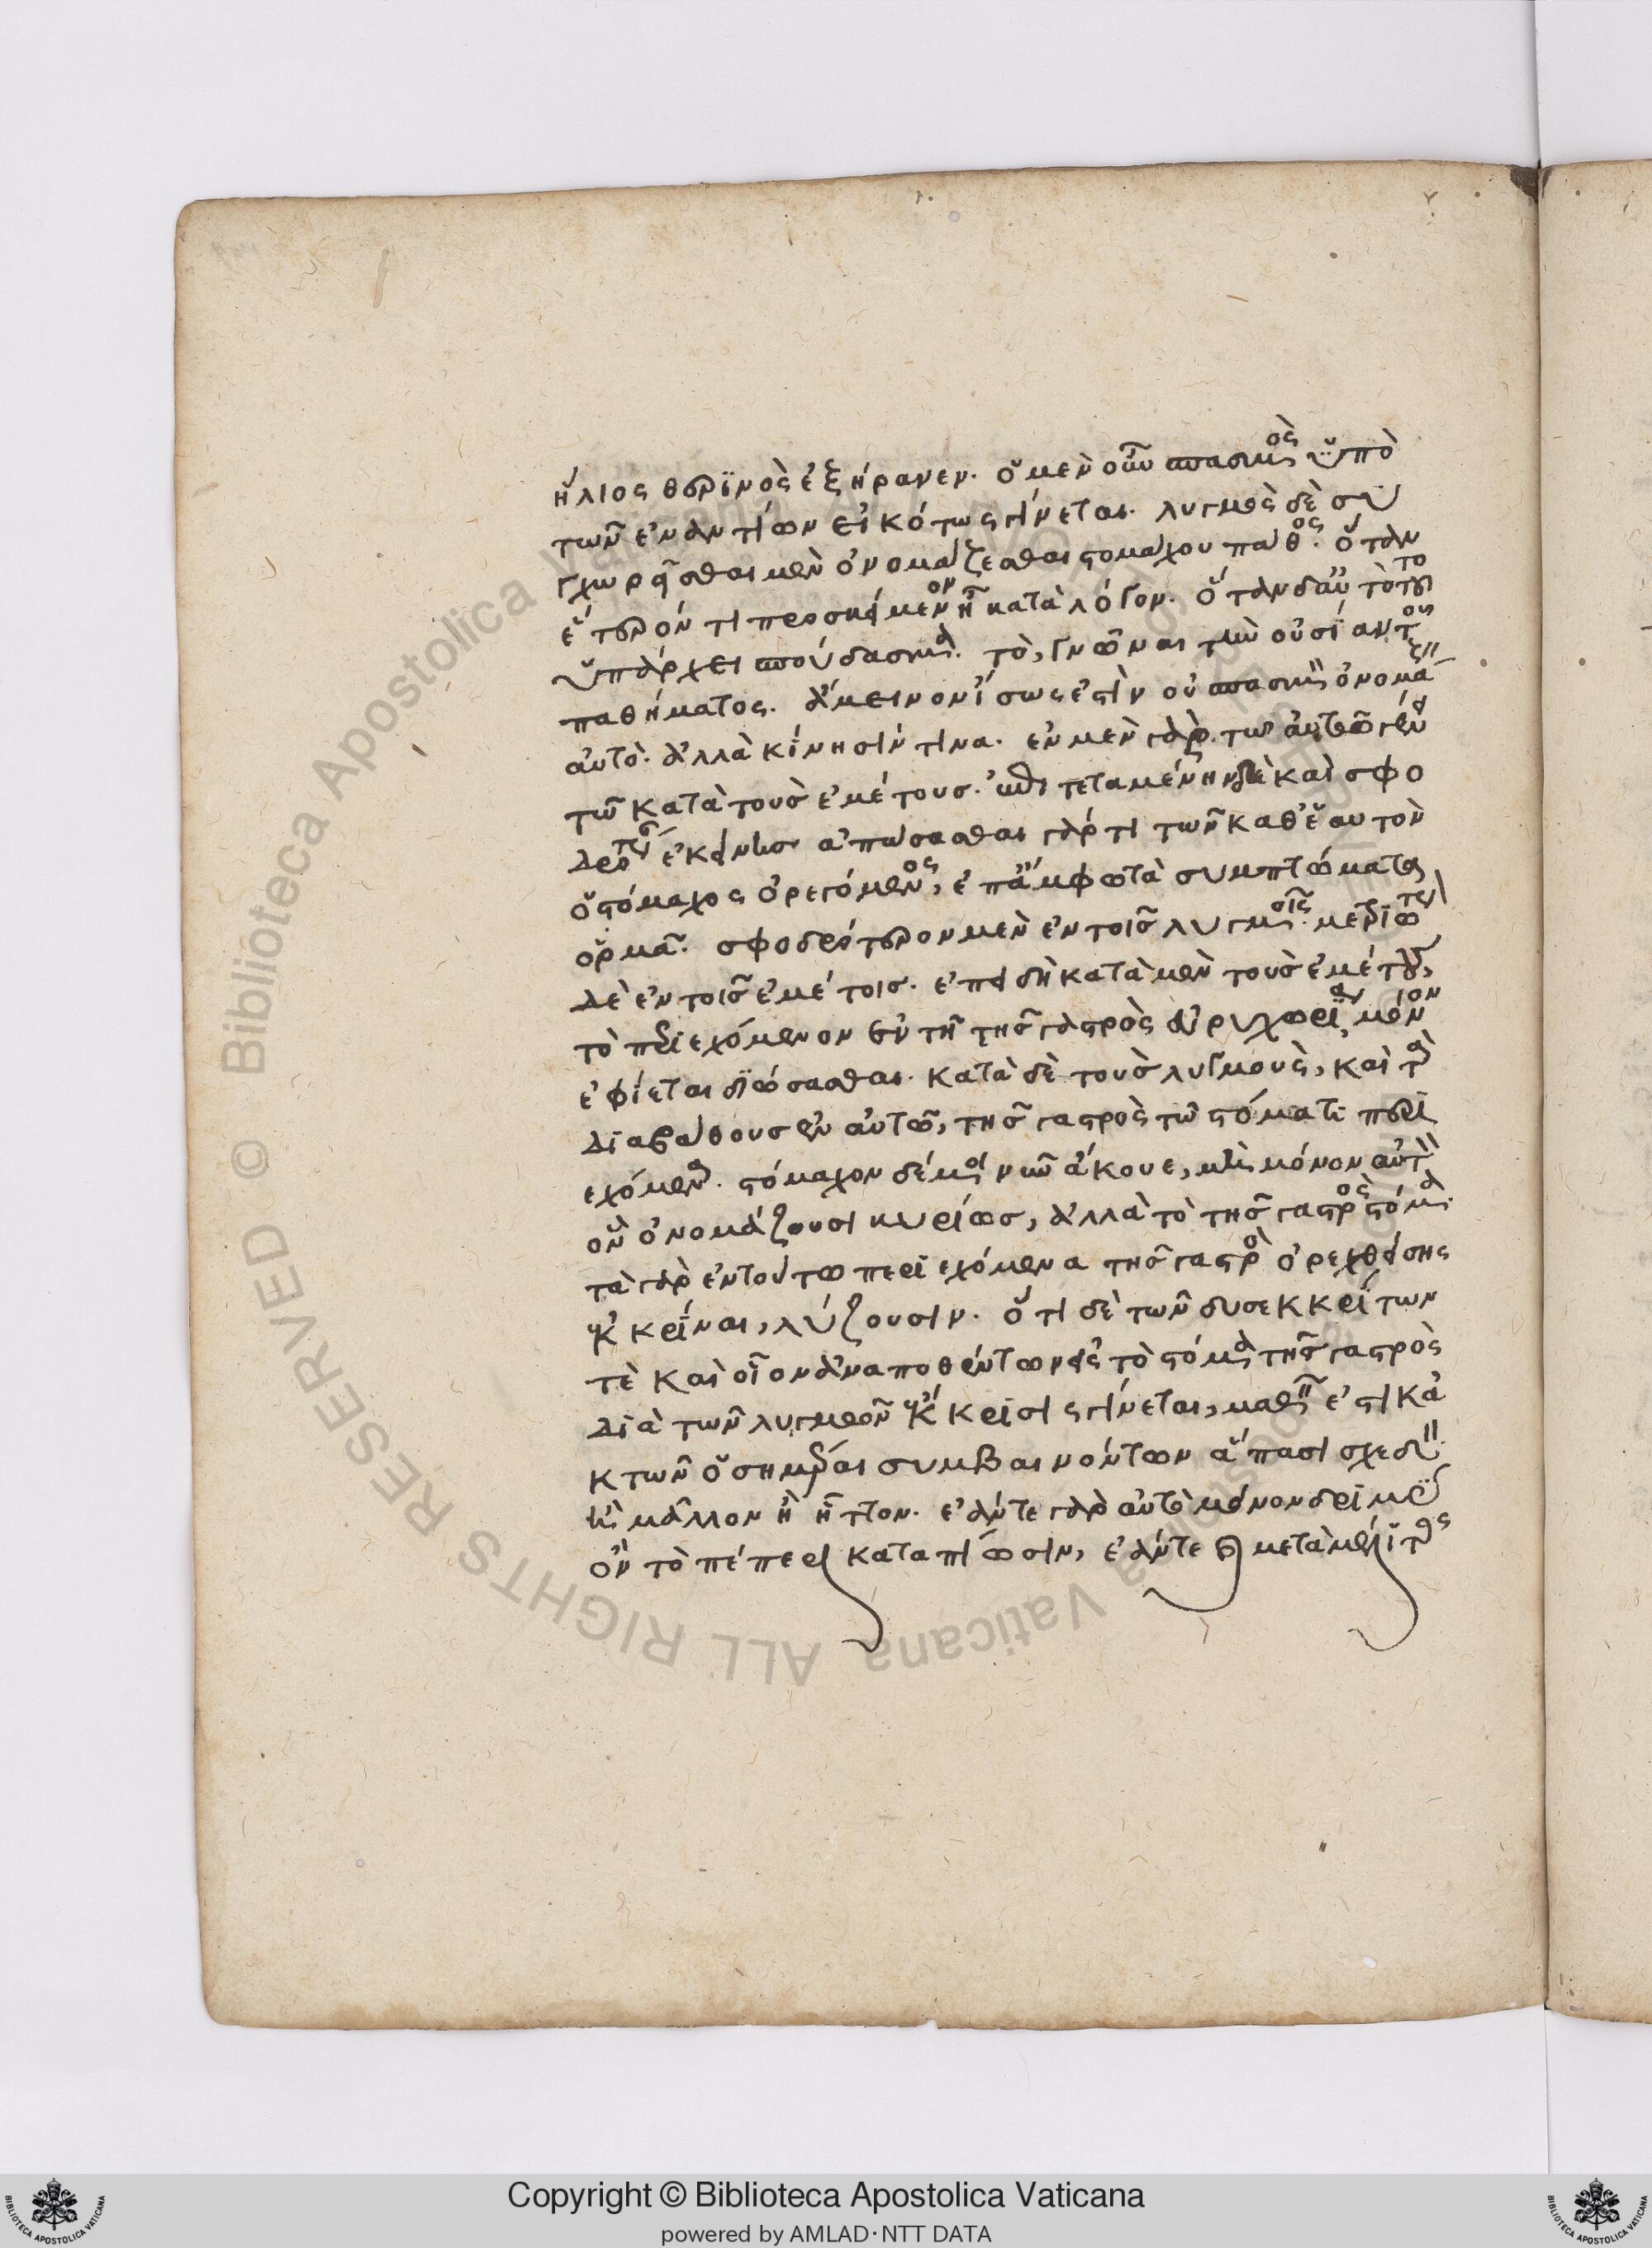 ἥλιος θερϊνὸς ἐξήρανεν. ὁ μὲν οὖν σπασμὸς ὑπὸ
τῶν ἐναντίων εἰκότως γίνεται. λυγμὸς δὲ συ
γχωρεῖσθαι μὲν ὀνομάζεσθαι στομάχου πάθος. ὅταν
ἕτερόν τι προσκείμενον ᾖ κατὰ λόγον. ὅταν δ' αὐτὸ τοῦτο
ὑπάρχει σπούδασμα. τὸ, γνῶναι τὴν οὐσίαν τοῦ
παθήματος. ἄμεινον ἴσως ἐστὶν οὐ σπασμὸν ὀνομάζειν
αὐτὸ. ἀλλὰ κίνησίν τινα. ἐν μὲν γὰρ τῶ αὐτῶ γένει
τῶν κατὰ τοὺς ἐμέτους. ἐπιτεταμένην δὲ καὶ σφο
δροτέραν ἐκείνων ἀπώσασθαι γάρ τι τῶν καθ' ἑαυτὸν
ὁ στόμαχος ὀρεγόμενος, ἐπ' ἄμφω τὰ συμπτώματα
ὁρμᾶ. σφοδρότερον μὲν ἐν τοῖς λυγμοῖς. μετριώτερον
δὲ ἐν τοῖς ἐμέτοις. ἐπειδὴ κατὰ μὲν τοὺς ἐμέτους,
τὸ περιεχόμενον ἐν τῆ τῆς γαστρὸς εὐρυχωρίαν μόνον
ἐφίεται διώσασθαι. κατὰ δὲ τοὺς λυγμοὺς, καὶ τὰ
διὰ βάθους ἐν αὐτῶ, τῆς γαστρὸς τῶ στόματι περι
εχόμενα. στόμαχον δέ μοι νῦν ἄκουε, μὴ μόνον αὐτὸν
ὃν ὀνομάζουσι κυρίως, ἀλλὰ τὸ τῆς γαστρὸς στόμα.
τὰ γὰρ ἐν τούτω περιεχόμενα τῆς γαστρὸς ὀρεχθείσης
ἐκκρίναι, λύζουσιν. ὅτι δὲ τῶν δυσεκκρίτων
τὲ καὶ οἷον ἀναποθέντων εἰς τὸ στόμα τῆς γαστρὸς
διὰ τῶν λυγμῶν ἔκκρισις γίνεται, μαθεῖν ἔστι κἀ
κ τῶν ὁσημέραι συμβαινόντων ἅπασι σχεδὸν
ἢ μᾶλλον ἢ ἧττον. ἐάν τε γὰρ αὐτὸ μόνον δριμὺ
ὂν τὸ πέπερι καταπίωσιν, ἐάν τε καὶ μετὰ μέλιτος